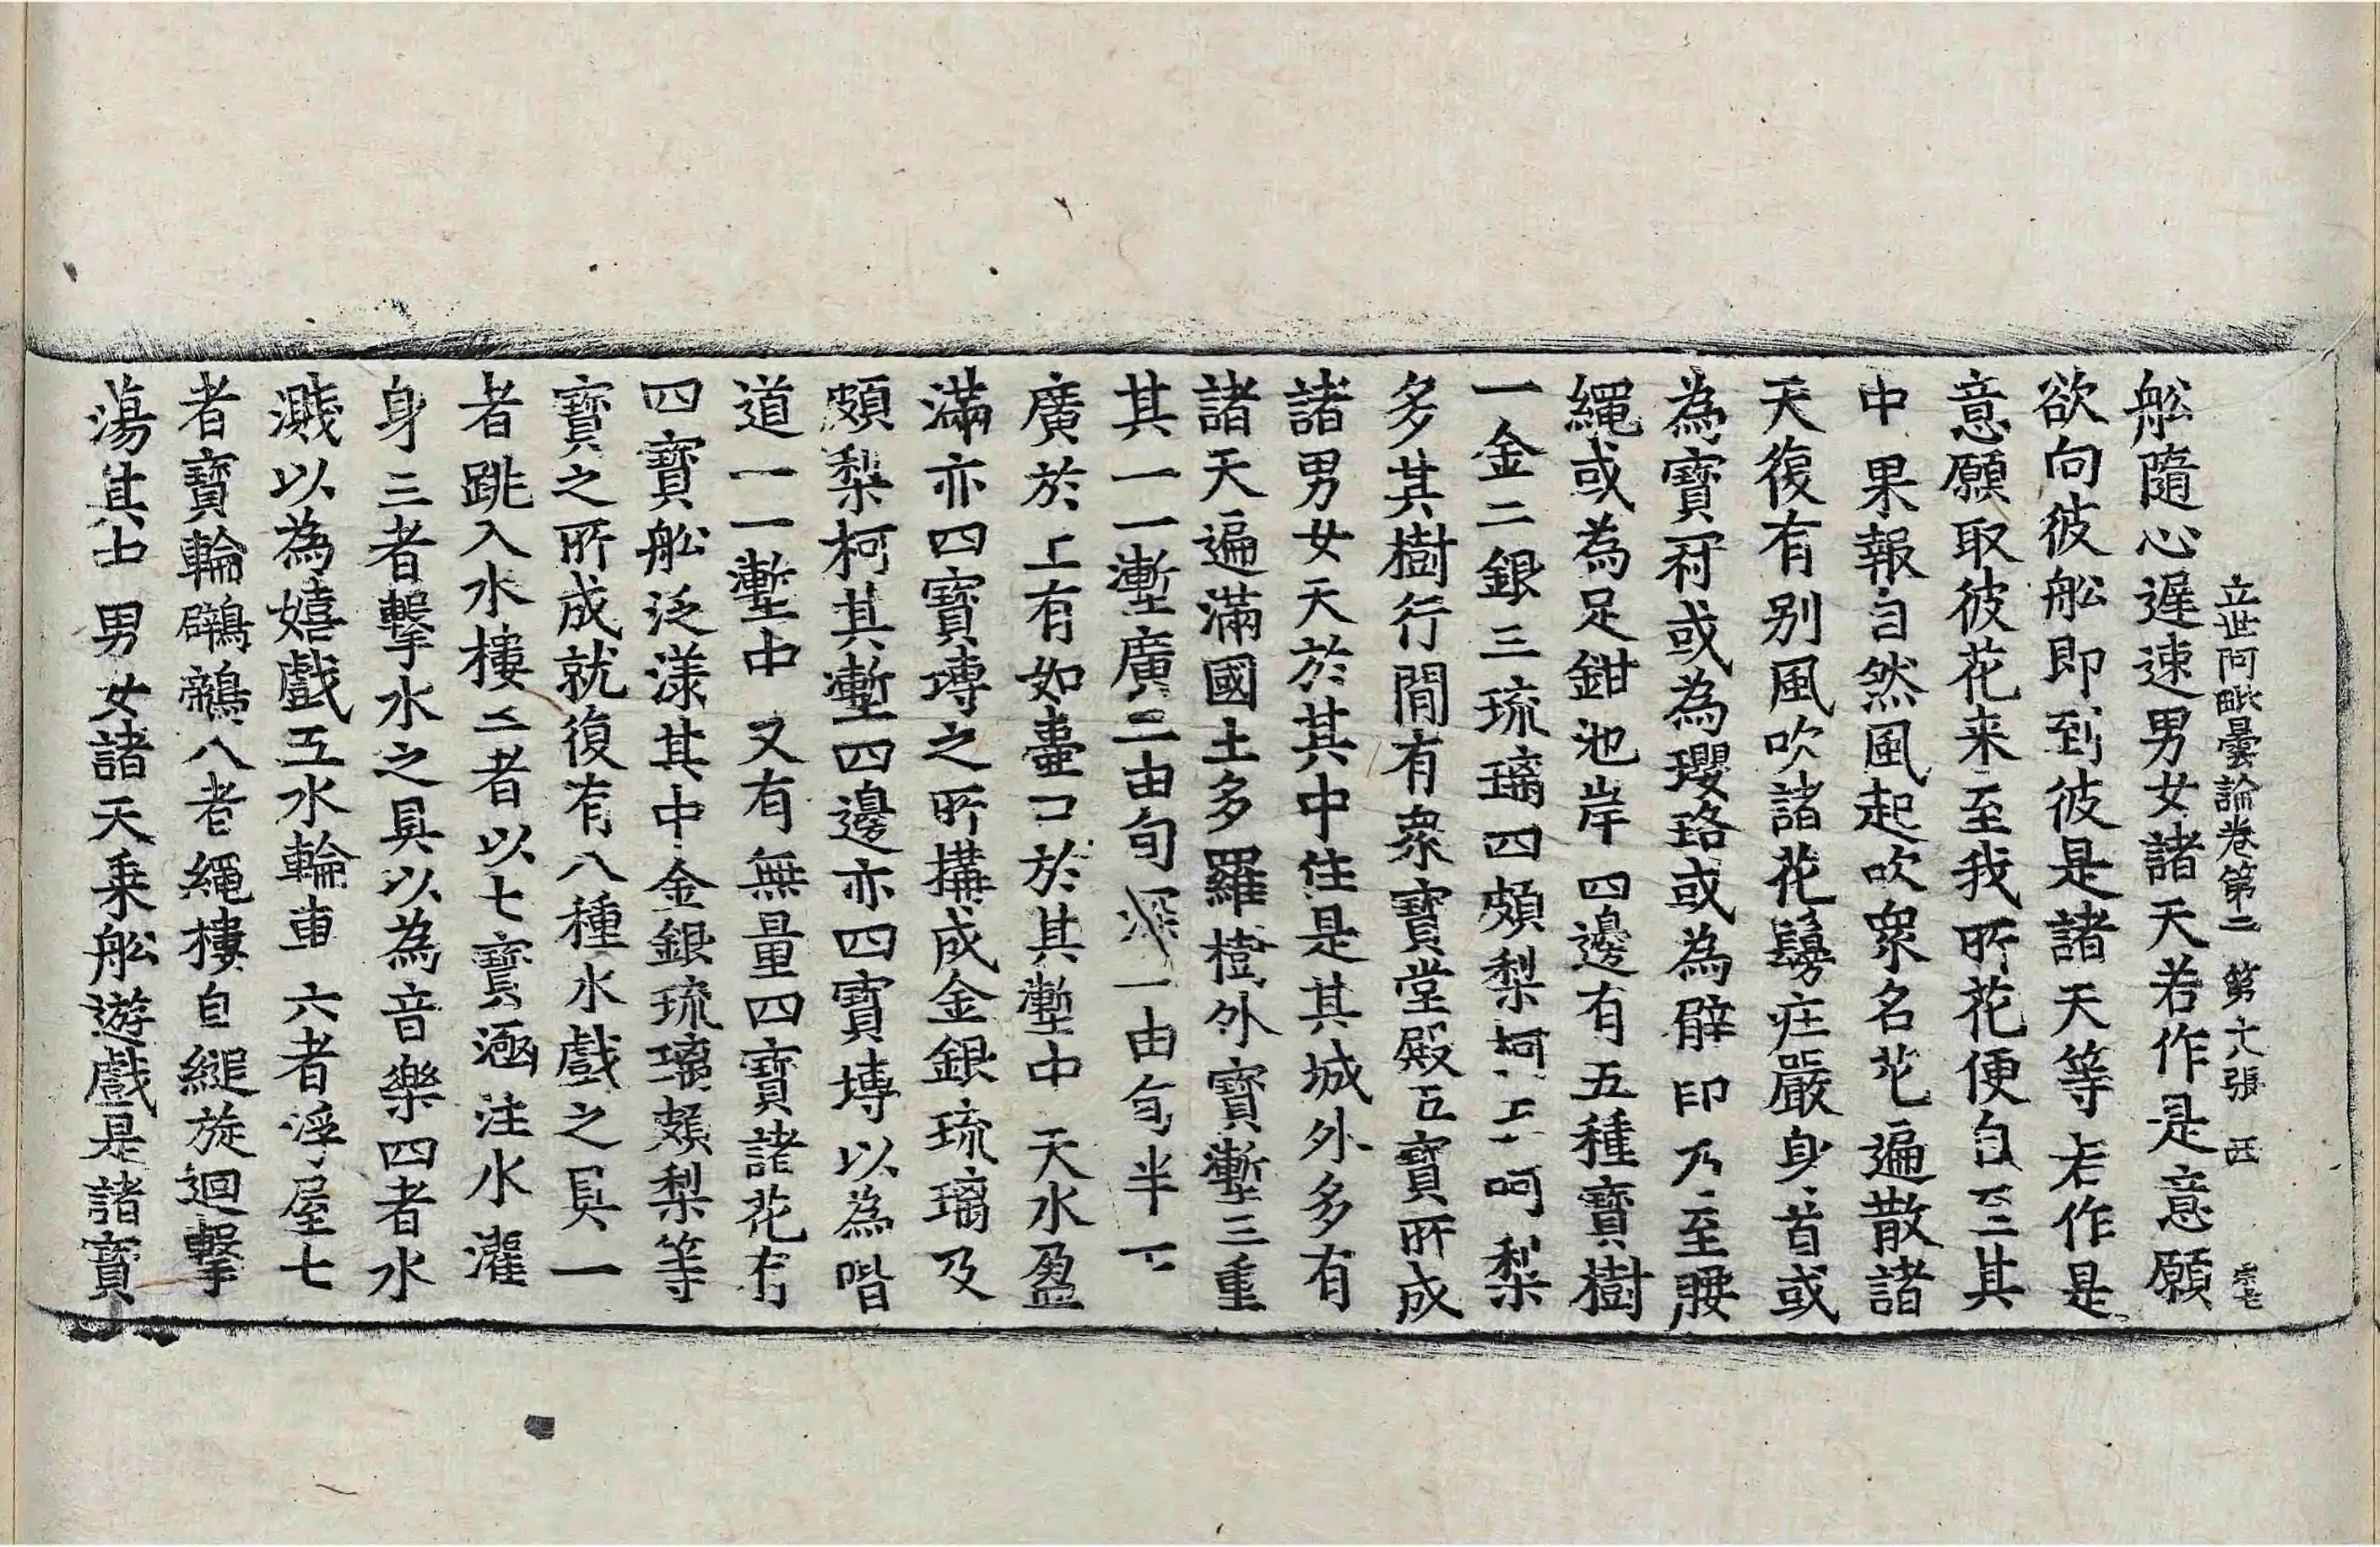 立世阿毗曇論卷第二 第十八張 西
舩隨心遲速男女諸天若作是意願
欲向彼舩即到彼是諸天等若作是
意願取彼花来至我所花便自至其
中果報自然風起吹衆名花遍散諸
天復有别風吹諸花鬘庄嚴身首或
為寶冠或為瓔珞或為臂印乃至腰
繩或為足鉗池岸四邊有五種寶樹
一金二銀三琉璃四頗梨柯五呵梨
多其樹行間有衆寶堂殿五寶所成
諸男女天於其中住是其城外多有
諸天遍滿國土多羅樹外寶壍三重
其一一壍廣二由旬深一由旬半下
廣於上有如壷口於其壍中天水盈
滿亦四寶塼之所搆成金銀琉璃及
頗梨柯其壍四邊亦四寶塼以為階
道一一壍中又有無量四寶諸花有
四寶舩泛漾其中金銀琉璃頗梨等
寶之所成就復有八種水戲之具一
者跳入水樓二者以七寶㴠注水灌
身三者擊水之具以為音樂四者水
濺以為嬉戲五水輪車六者浮屋七
者寶輪鸊鷉八者繩樓自縋旋迴擊
蕩其中男女諸天乗舩遊戲是諸寶